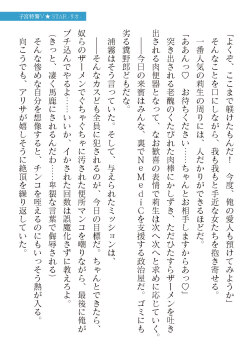 「よくぞ、ここまで躾けたもんだ！　今度、俺の愛人も預けてみようか」
そんなことを口にしながら、我も我もと手近な女たちを抱き寄せる。
一番人気の莉生の周りには、人だかりができるほどだ。
「ああんっ♡　お待ちください……ちゃんとお相手しますからあっ♡」
突き出される老醜のくたびれた肉棒にかしずき、ただひたすらザーメンを吐き
出される肉便器となって、なお歓喜の表情で莉生は次へ次へと求めに応じていく。
今宵のゴミどもはみんな、裏でNeMediCを支援する政治屋だ。ゴミにも
劣る糞野郎どもだな。
浦霧はそう言っていた。そして、与えられたミッションは、
――そんなクズどもを全員
のが、今日の目標だ。ちゃんとできたら、
奴らのザーメンでぐちゃぐちゃに汚された便所マンコを嘲りながら、最後に俺が
ブチ込んでやるよ……いいな、イかされた回数は誤魔化さずに教えろよ。
（きっと、凄く馬鹿にされるんだわ……卑猥な言葉で侮辱される）
そんな惨めな自分を想像すると、チンコを咥えるのにもいっそう熱が入る。
向こうでも、アリサが嬉しそうに絶頂を繰り返していた。